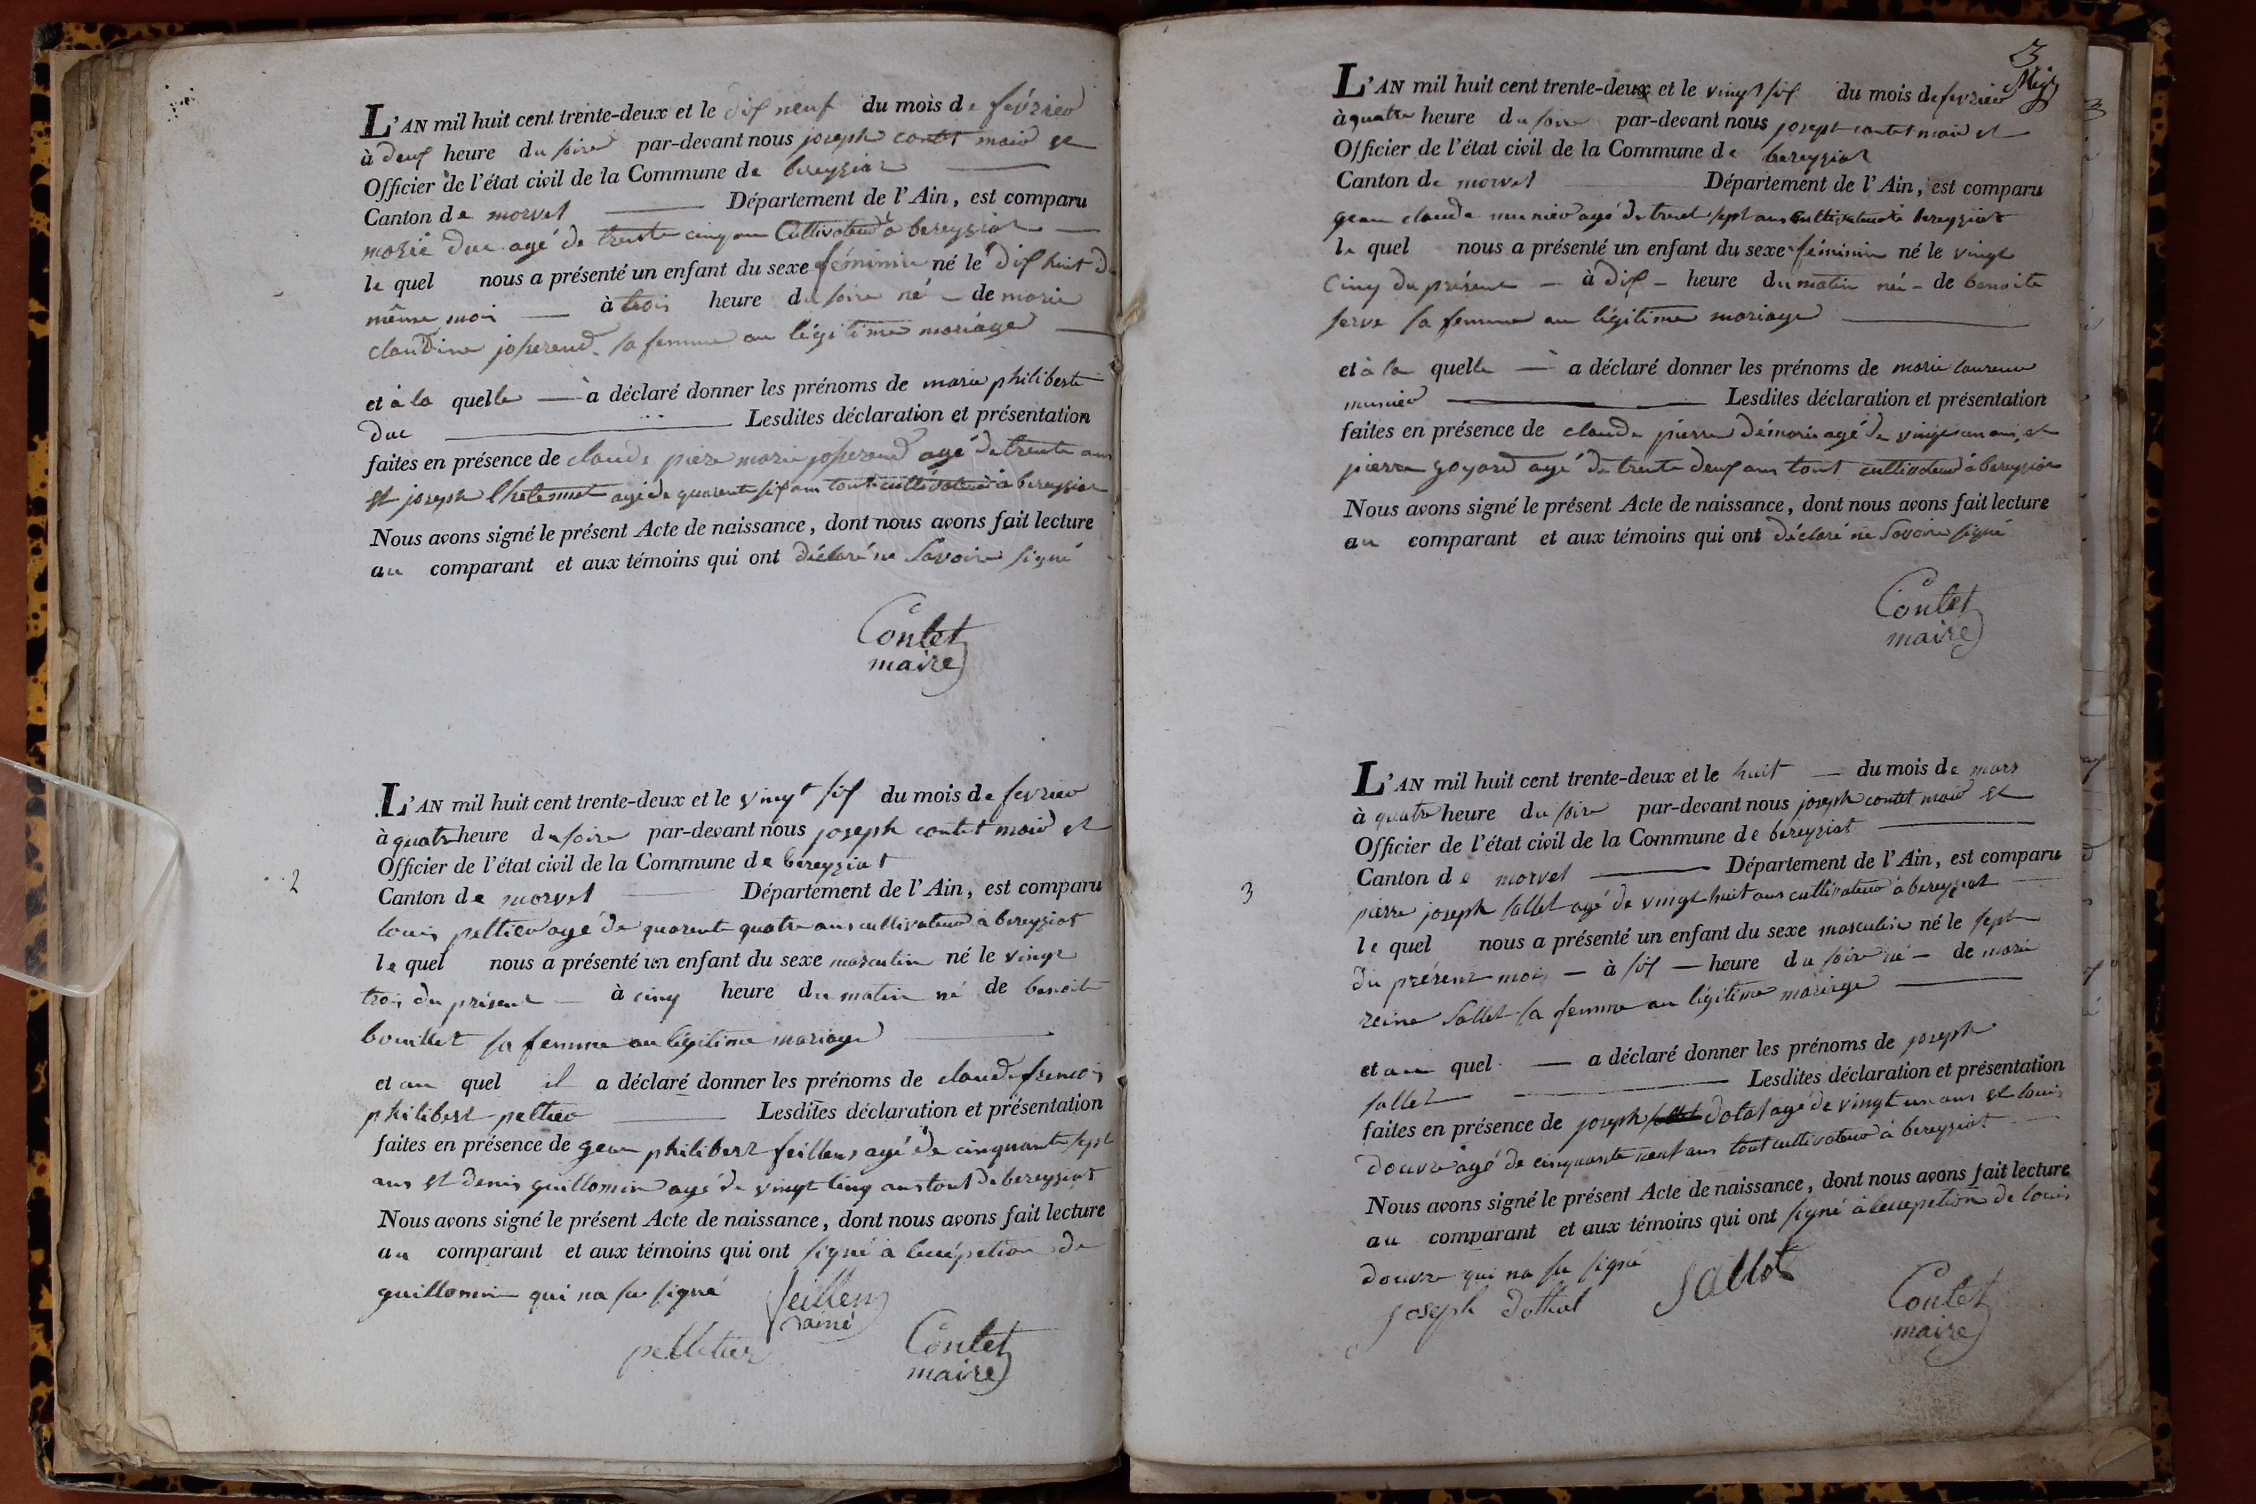 L'AN mil huit cent trente-deux et le dix neuf du mois de février
à deux heure du soire par-devant nous joseph contet maire et
Officier de l'état civil de la Commune de bereyziat
Canton de morvel Département de l'Ain, est comparu
marie duc agé de trente cinq ans Cultivateur à bereyziat
le quel nous a présenté un enfant du sexe féminin né le dix huit du
même moi à trois heure du soire né de marie
claudine josserand sa femme au légitime mariage
et à la quelle à déclaré donner les prénoms de marie philiberte
duc Lesdites déclaration et présentation
faites en présence de claude piere marie josserand agé de trente ans
et joseph agé de quarente six ans tout cultivateur à bereyziat
Nous avons signé le présent Acte de naissance, dont nous avons fait lecture
au comparant et aux témoins qui ont déclaré ne savoir signé
Contet
maire
2
L'AN mil huit cent trente-deux et le vingt six du mois de fevrier
à quatre heure du soire par-devant nous joseph contet maire et
Officier de l'état civil de la Commune de bereyziat
Canton de morvel Département de l'Ain, est comparu
louis peltier agé de quarente quatre ans cultivateur à bereyziat
le quel nous a présenté un enfant du sexe masculin né le vingt
trois du présent à cinq heure du matin né de benoite
bouillet sa femme au légitime mariage
et au quel il a déclaré donner les prénoms de claude francois
philibert peltier Lesdites déclaration et présentation
faites en présence de gean philibert feillens agé de cinquante sept
ans et denis guillomin agé de vingt cinq ans tout de bereyziat
Nous avons signé le présent Acte de naissance, dont nous avons fait lecture
au comparant et aux témoins qui ont signé a de
guillomin qui na su signé
feillens
ainé
pelletier
Contet
maire
3
L'AN mil huit cent trente-deux et le vingt six du mois de fevrier
à quatre heure du soire par-devant nous joseph contet maire et
Officier de l'état civil de la Commune de bereyziat
Canton de morvel Département de l'Ain, est comparu
gean claude munier agé de trent sept ans cultivateur à bereyziat
le quel nous a présenté un enfant du sexe féminin né le vingt
cinq du présent à dix heure du matin né de benoite
serve sa femme au légitime mariage
et à la quelle à a déclaré donner les prénoms de marie laurence
munier Lesdites déclaration et présentation
faites en présence de claude pierre démorie agé de vingt un ans et
pierre goyard agé de trente deux ans tout cultivateur à bereyziat
Nous avons signé le présent Acte de naissance, dont nous avons fait lecture
au comparant et aux témoins qui ont déclaré ne savoir signé
Contet
maire
3
L'AN mil huit cent trente-deux et le huit du mois de mars
à quatre heure du soire par-devant nous joseph contet maire et
Officier de l'état civil de la Commune de bereyziat
Canton de morvel Département de l'Ain, est comparu
pierre joseph sallet agé de vingt huit ans cultivateur à bereyziat
le quel nous a présenté un enfant du sexe masculin né le sept
du présent mois à six heure du soire né de marie
reine sallet sa femme au légitime mariage
et au quel a déclaré donner les prénoms de joseph
sallet Lesdites déclaration et présentation
faites en présence de joseph dotal agé de vingt un ans et louis
douvre agé de cinquante neuf ans tout cultivateur à bereyziat
Nous avons signé le présent Acte de naissance, dont nous avons fait lecture
au comparant et aux témoins qui ont signé à de louis
douvre qui na su signé
joseph dothal
sallet
Contet
maire